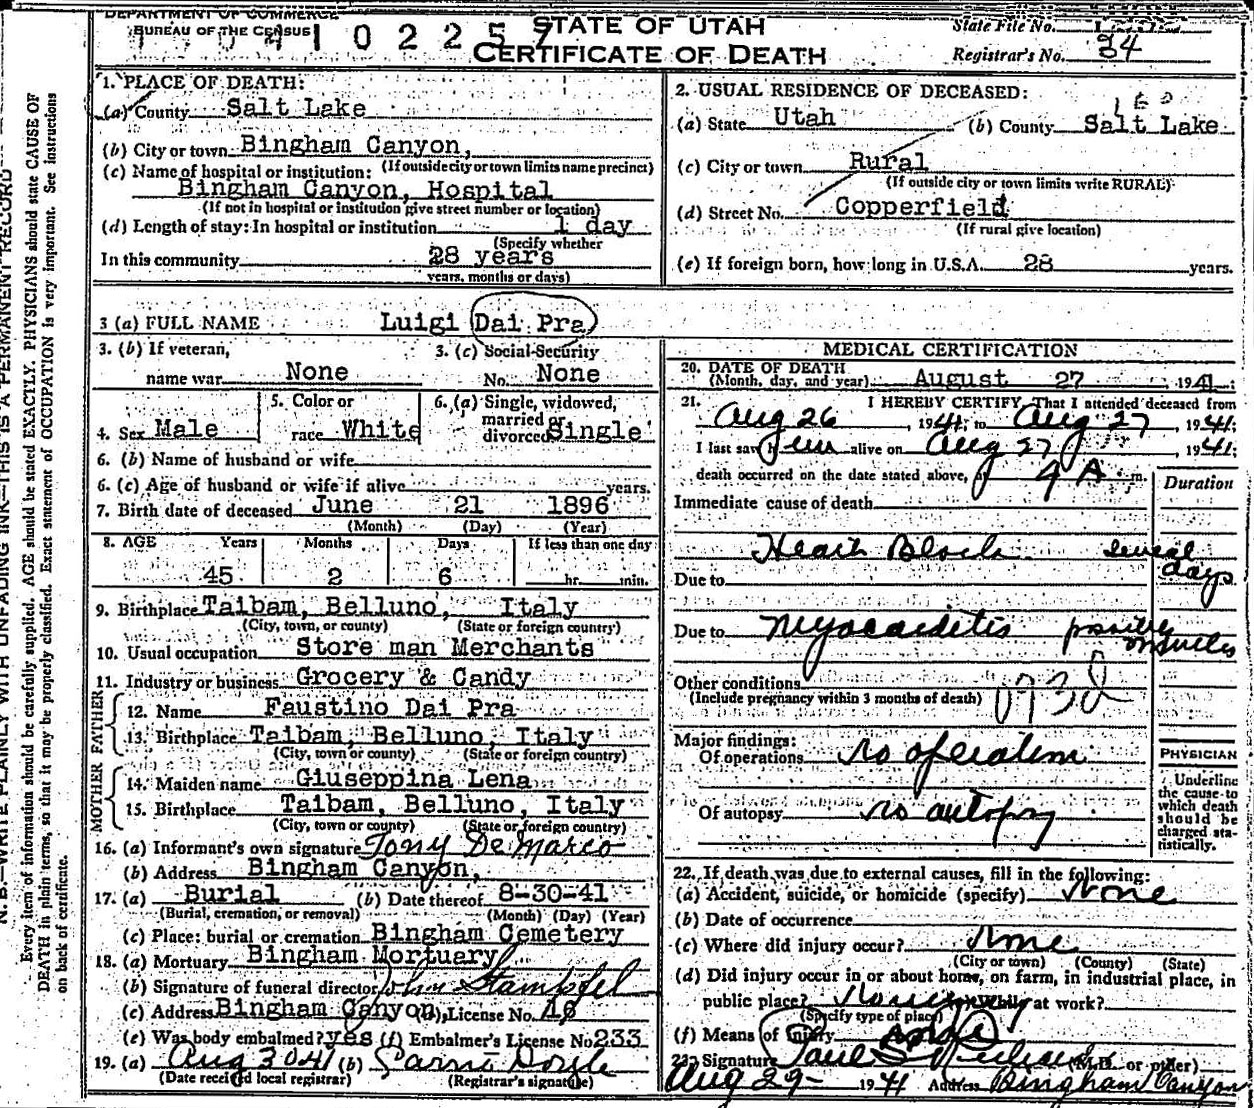 DEPARTMENT OF COMMERCE
BUREAU OF THE CENSUS
STATE OF UTAH
CERTIFICATE OF DEATH
State File No.
Registrar's No. 34
1. PLACE OF DEATH:
(a) County Salt Lake
(b) City or town Bingham Canyon,
(If outside city or town limits name precinct)
(c) Name of hospital or institution:
Bingham Canyon, Hospital
(If not in hospital or institution give street number or location)
(d) Length of stay: In hospital or institution 1 day
(Specify whether
In this community 28 years
years, months or days)
2. USUAL RESIDENCE OF DECEASED:
(a) State Utah (b) County Salt Lake
(c) City or town Rural
(If outside city or town limits write RURAL)
(d) Street No. Copperfield
(If rural give location)
(e) If foreign born, how long in U.S.A. 28 years.
3 (a) FULL NAME Luigi Dai Pra
3. (b) If veteran, name war None
3. (c) Social Security No. None
4. Sex Male
5. Color or race White
6. (a) Single, widowed, married divorced Single
6. (b) Name of husband or wife
6. (c) Age of husband or wife if alive years.
7. Birth date of deceased June 21 1896
(Month) (Day) (Year)
8. AGE Years Months Days If less than one day
45 2 6 hr. min.
9. Birthplace Taibam, Belluno, Italy
(City, town, or county) (State or foreign country)
10. Usual occupation Store man Merchants
11. Industry or business Grocery & Candy
FATHER
12. Name Faustino Dai Pra
13. Birthplace Taibam, Belluno, Italy
(City, town or county) (State or foreign country)
MOTHER
14. Maiden name Giuseppina Lena
15. Birthplace Taibam, Belluno, Italy
(City, town or county) (State or foreign country)
16. (a) Informant's own signature Tony DeMarco
(b) Address Bingham Canyon,
17. (a) Burial (b) Date thereof 8-30-41
(Burial, cremation, or removal) (Month) (Day) (Year)
(c) Place: burial or cremation Bingham Cemetery
18. (a) Mortuary Bingham Mortuary
(b) Signature of funeral director John Stampfel
(c) Address Bingham Canyon, License No.
(e) Was body embalmed? yes (f) Embalmer's License No 233
19. (a) Aug 30 41 (b) Carrie Doyle
(Date received local registrar) (Registrar's signature)
MEDICAL CERTIFICATION
20. DATE OF DEATH
(Month, day, and year) August 27, 1941;
21. I HEREBY CERTIFY, That I attended deceased from
Aug 26, 1941; to Aug 27, 1941;
I last saw him alive on Aug 27, 1941;
death occurred on the date stated above, at 9 A m.
Duration
Immediate cause of death
Heart Block several days
Due to
Due to Myocarditis possibly
Other conditions
(Include pregnancy within 3 months of death)
Major findings:
Of operations no operation
Of autopsy no autopsy
PHYSICIAN
Underline the cause to which death should be charged statistically.
22. If death was due to external causes, fill in the following:
(a) Accident, suicide, or homicide (specify) None
(b) Date of occurrence
(c) Where did injury occur? None
(City or town) (County) (State)
(d) Did injury occur in or about home, on farm, in industrial place, in
public place? While at work?
(Specify type of place)
(f) Means of injury
23. Signature Paul S. (M.D. or other)
Aug 29 - 1941 Address Bingham Canyon
N. B.—WRITE PLAINLY WITH UNFADING INK—THIS IS A PERMANENT RECORD
Every item of information should be carefully supplied. AGE should be stated EXACTLY. PHYSICIANS should state CAUSE OF
DEATH in plain terms, so that it may be properly classified. Exact statement of OCCUPATION is very important. See instructions
on back of certificate.